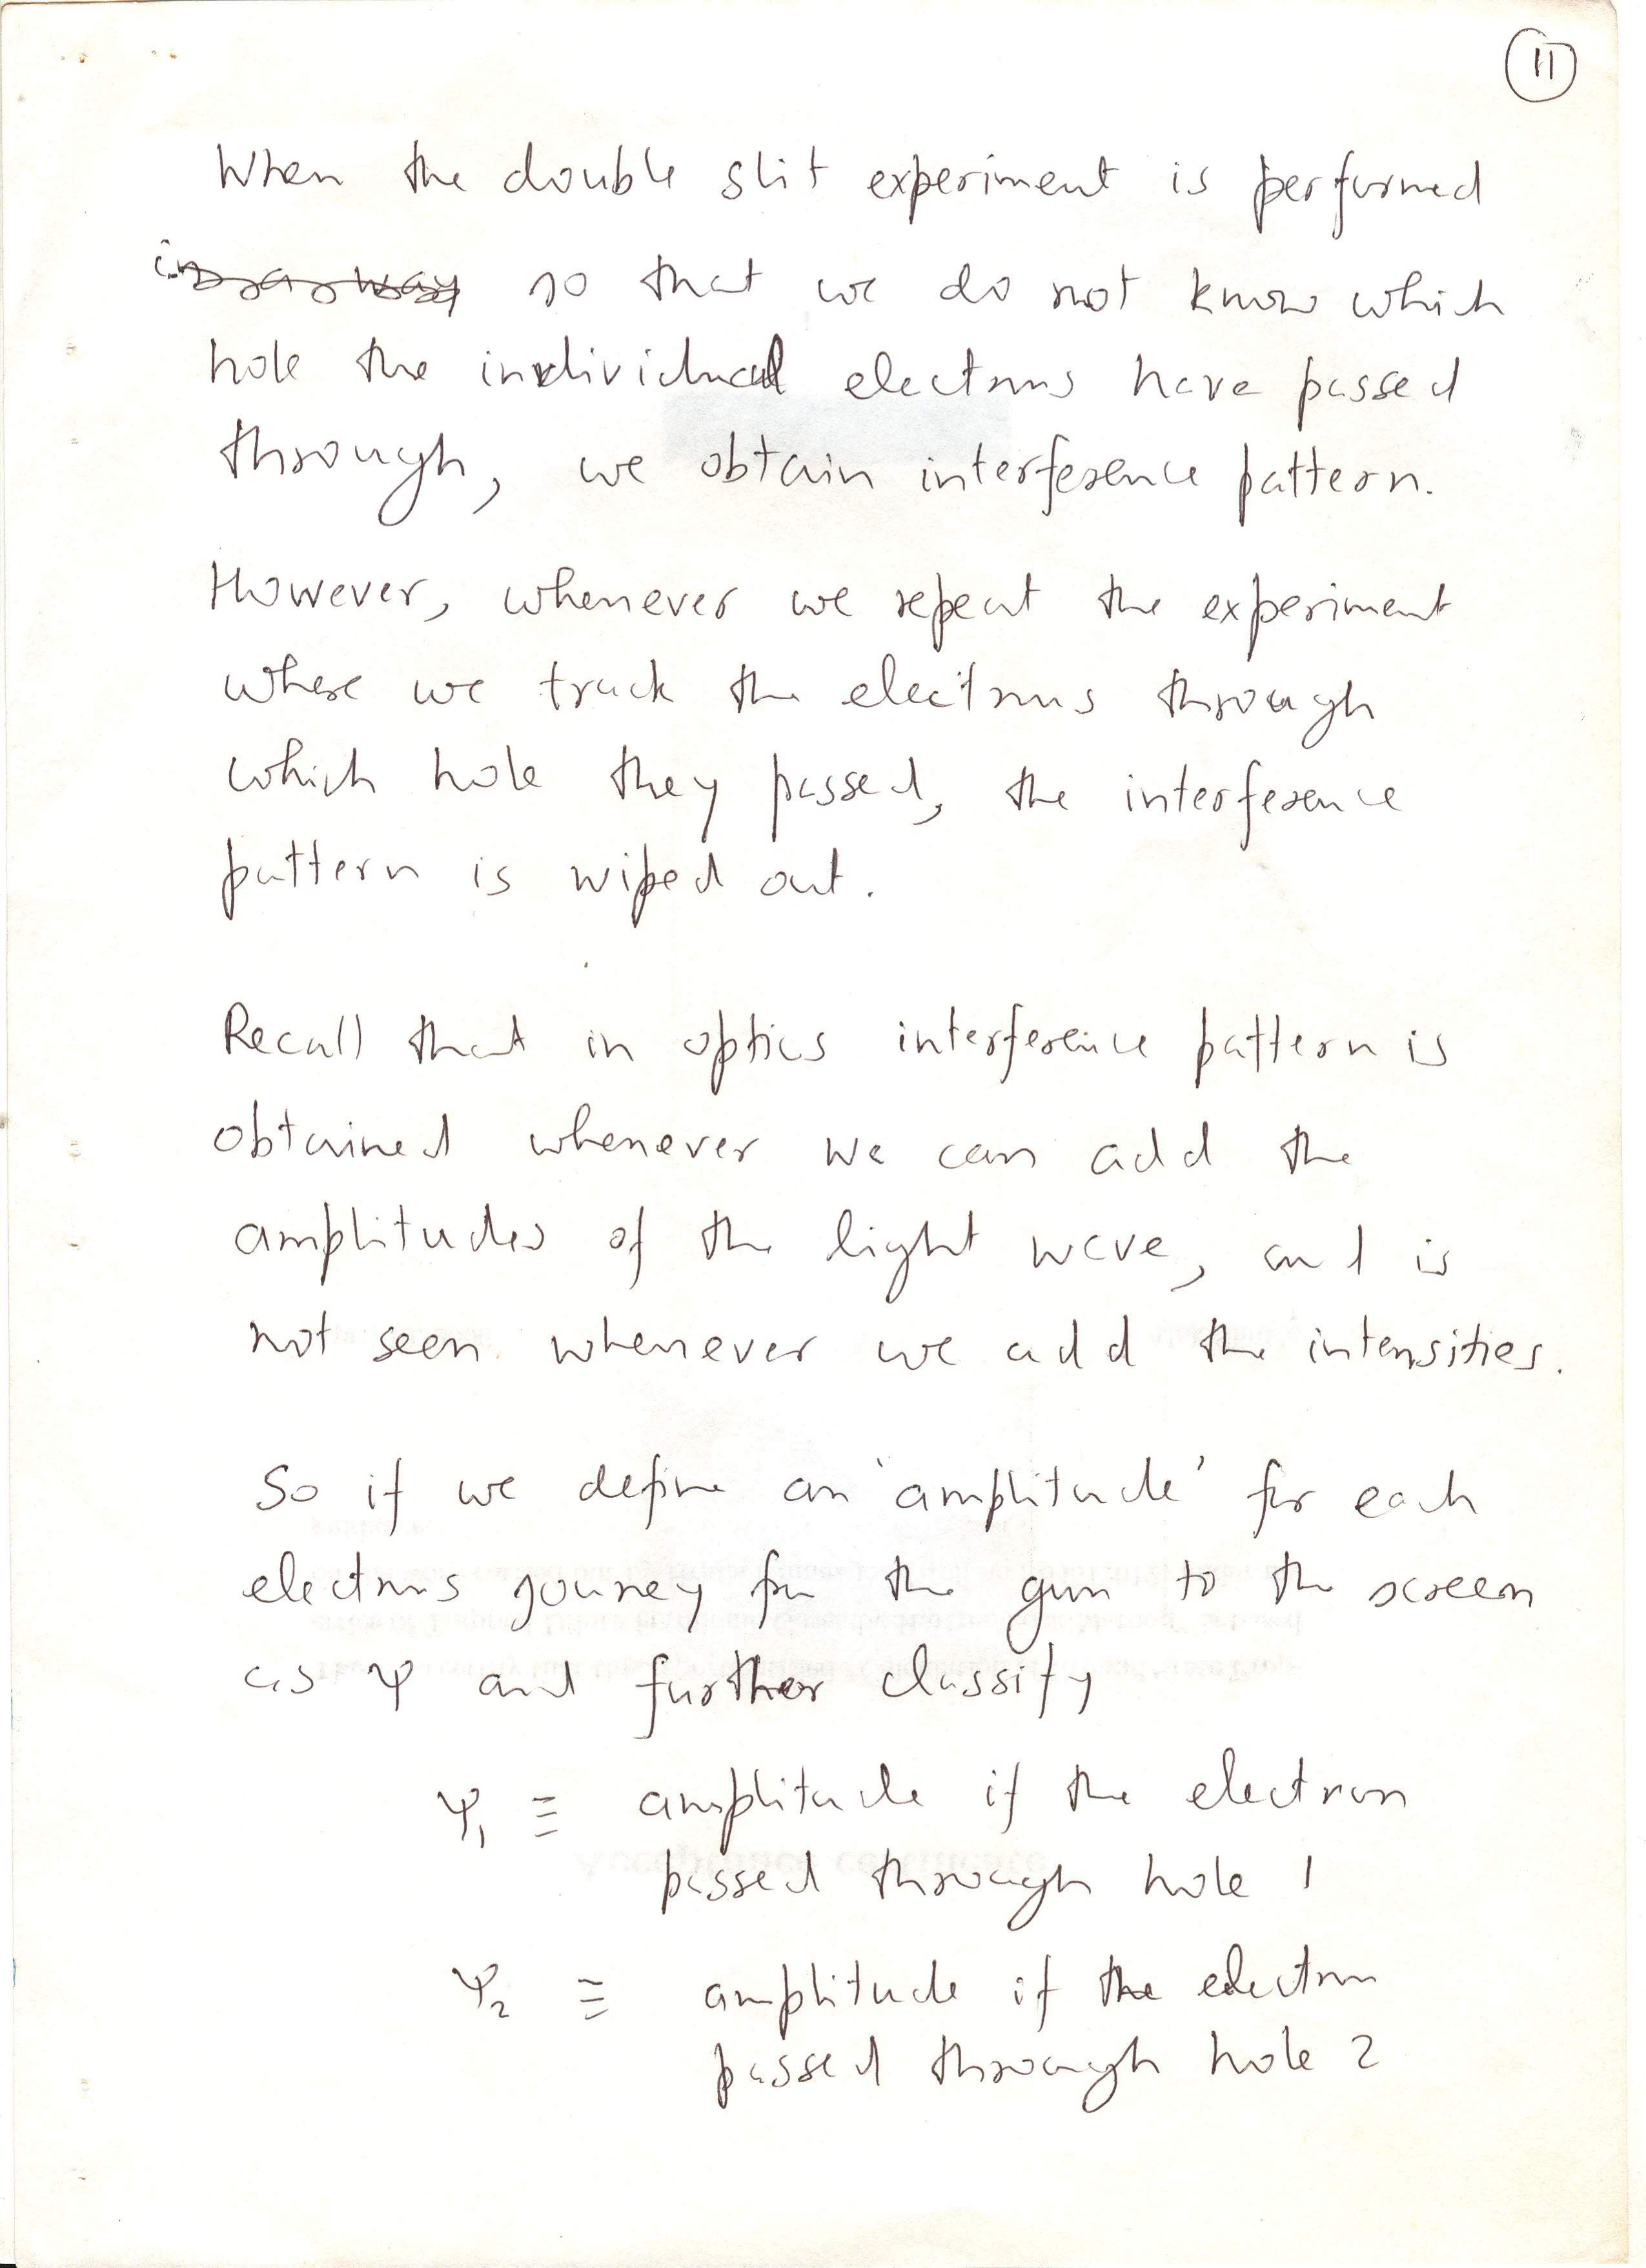 11
When the double slit experiment is performed
in a way so that we do not know which
hole the individual electrons have passed
through, we obtain interference pattern.
However, whenever we repeat the experiment
where we track the electrons through
which hole they passed, the interference
pattern is wiped out.
Recall that in optics interference pattern is
obtained whenever we can add the
amplitudes of the light wave, and is
not seen whenever we add the intensities.
So if we define an 'amplitude' for each
electrons journey from the gun to the screen
as ψ and further classify
ψ₁ ≡ amplitude if the electron
passed through hole 1
ψ₂ ≡ amplitude if the electron
passed through hole 2